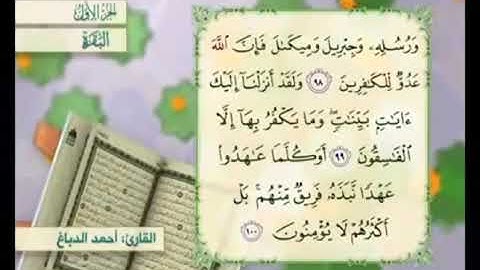 الجزء الأول
البقرة
وَرُسُلِهِۦ وَجِبْرِيلَ وَمِيكَىٰلَ فَإِنَّ ٱللَّهَ
عَدُوٌّ لِّلْكَٰفِرِينَ ٩٨ وَلَقَدْ أَنزَلْنَآ إِلَيْكَ
ءَايَٰتٍۭ بَيِّنَٰتٍ ۖ وَمَا يَكْفُرُ بِهَآ إِلَّا
ٱلْفَٰسِقُونَ ٩٩ أَوَكُلَّمَا عَٰهَدُوا۟
عَهْدًا نَّبَذَهُۥ فَرِيقٌ مِّنْهُم ۚ بَلْ
أَكْثَرُهُمْ لَا يُؤْمِنُونَ ١٠٠
القارئ: أحمد الدباغ